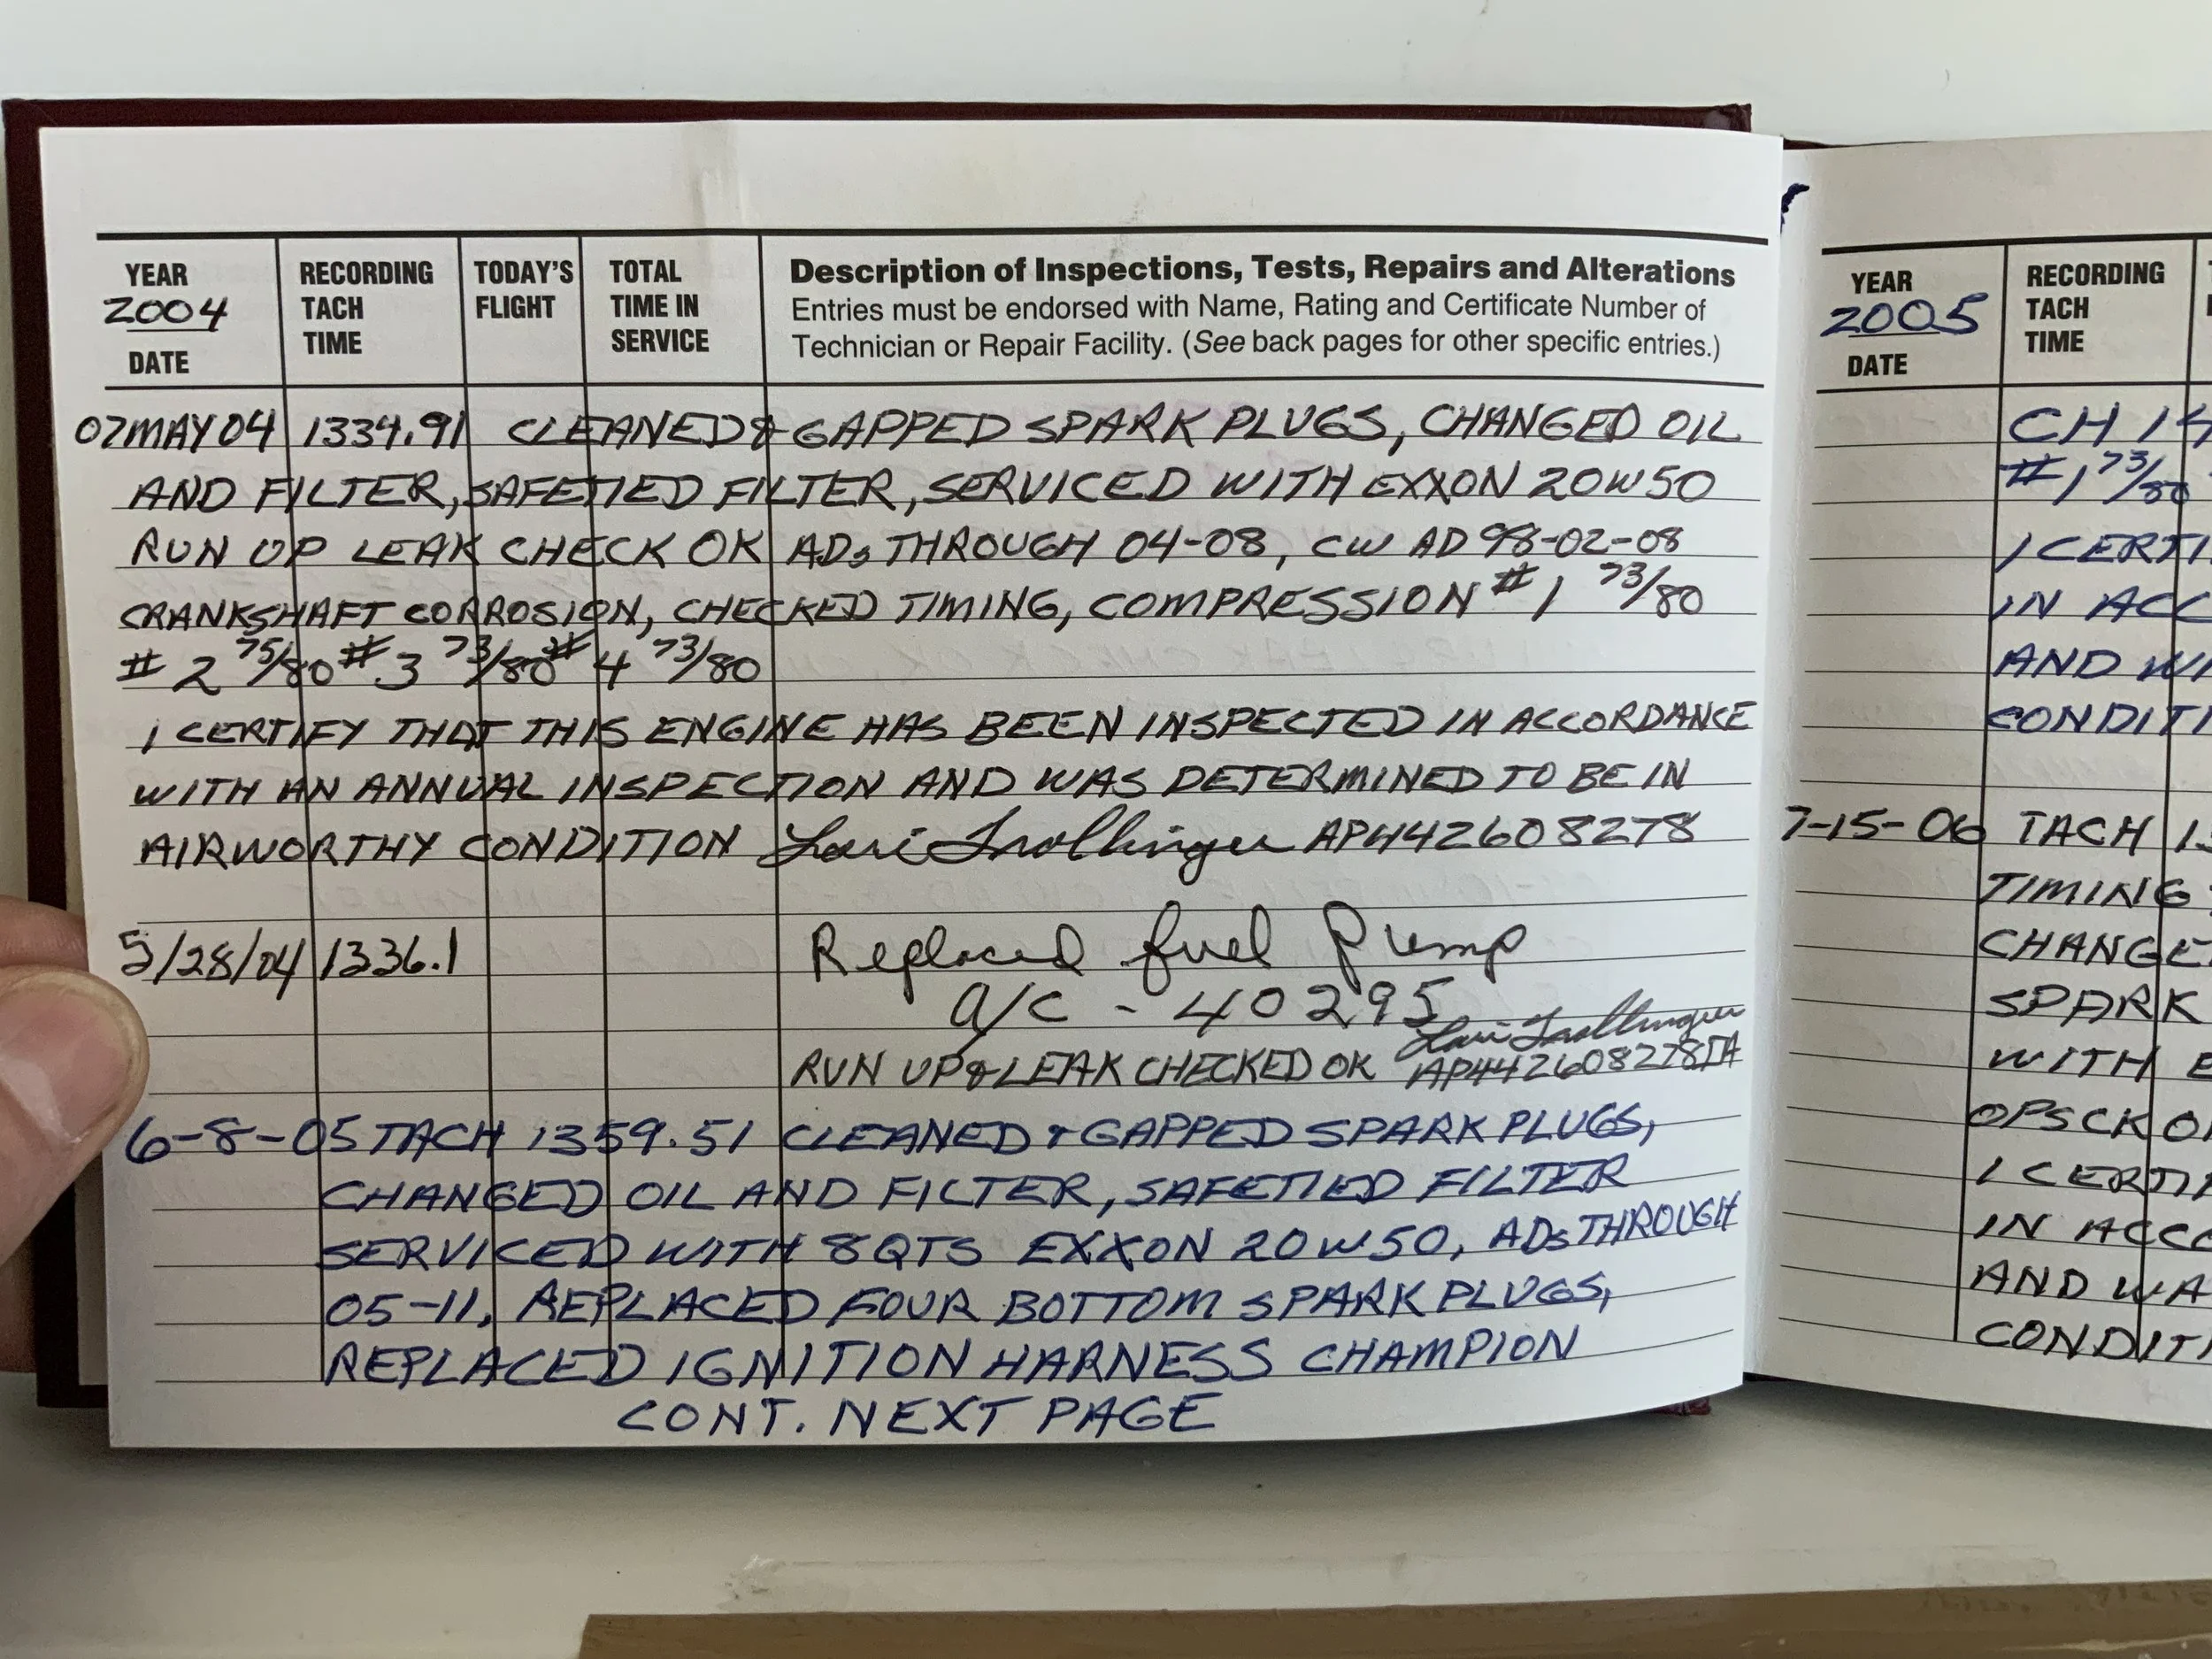 YEAR
2004
DATE
RECORDING
TACH
TIME
TODAY'S
FLIGHT
TOTAL
TIME IN
SERVICE
Description of Inspections, Tests, Repairs and Alterations
Entries must be endorsed with Name, Rating and Certificate Number of
Technician or Repair Facility. (See back pages for other specific entries.)
07MAY04 1334.91 CLEANED & GAPPED SPARK PLUGS, CHANGED OIL
AND FILTER, SAFETIED FILTER, SERVICED WITH EXXON 20W50
RUN UP LEAK CHECK OK ADs THROUGH 04-08, CW AD 98-02-08
CRANKSHAFT CORROSION, CHECKED TIMING, COMPRESSION #1 73/80
#2 75/80 #3 73/80 #4 73/80
I CERTIFY THAT THIS ENGINE HAS BEEN INSPECTED IN ACCORDANCE
WITH AN ANNUAL INSPECTION AND WAS DETERMINED TO BE IN
AIRWORTHY CONDITION Lori Trollinger AP442608278
5/28/04 1336.1 Replaced fuel Pump
A/C - 40295
Lori Trollinger
RUN UP & LEAK CHECKED OK AP442608278IA
6-8-05 TACH 1359.51 CLEANED & GAPPED SPARK PLUGS,
CHANGED OIL AND FILTER, SAFETIED FILTER
SERVICED WITH 8QTS EXXON 20W50, ADs THROUGH
05-11, REPLACED FOUR BOTTOM SPARK PLUGS,
REPLACED IGNITION HARNESS CHAMPION
CONT. NEXT PAGE
YEAR
2005
DATE
RECORDING
TACH
TIME
CH 14
#1 73/80
I CERTI
IN ACC
AND WA
CONDITI
7-15-06 TACH 13
TIMING
CHANGE
SPARK
WITH E
OPS CK O
I CERTI
IN ACCO
AND WA
CONDITI